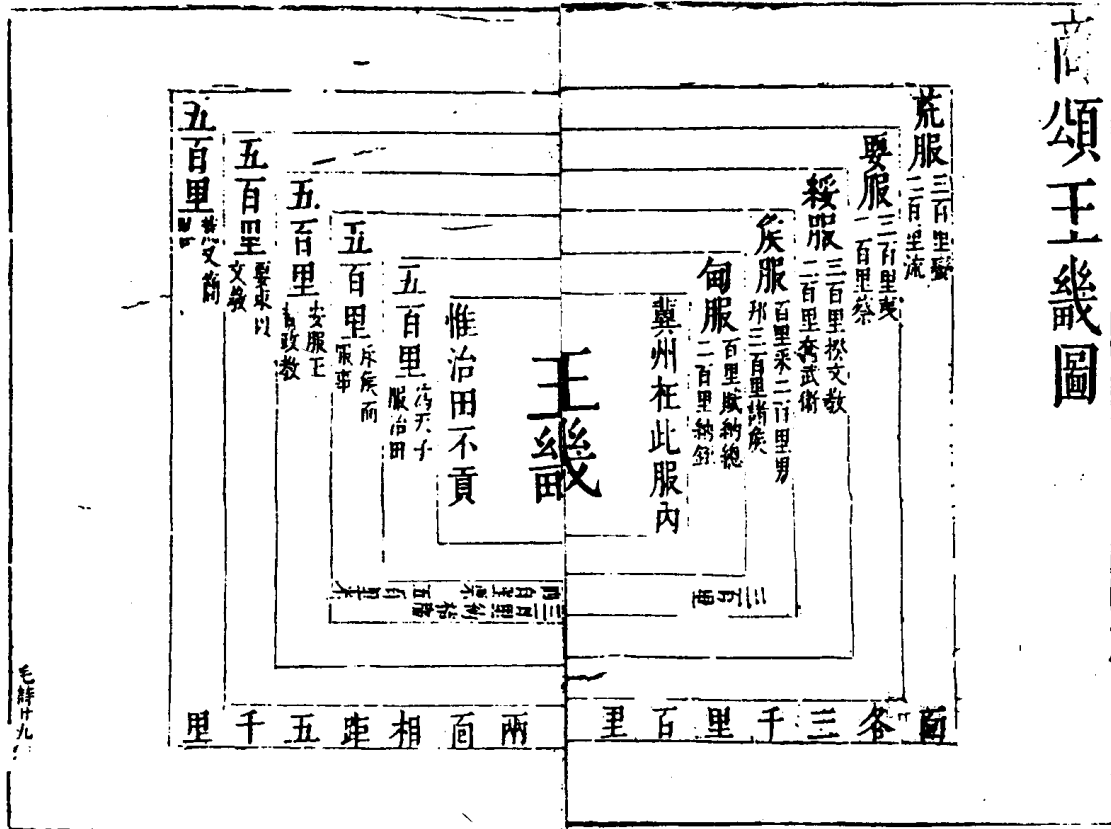 商頌王畿圖
荒服
三百里蠻
二百里流
要服
三百里夷
二百里蔡
綏服
三百里揆文教
二百里奮武衛
矦服
百里采二百里男
邦三百里諸矦
甸服
百里賦納總
二百里納銍
冀州在此服內
王畿
惟治田不貢
五百里
為天子
服治田
五百里
斥矦而
服事
五百里
安服王
者政教
五百里
要束以
文教
五百里
三百里
三百里納秸
五百里米
面各三千里百里
兩面相距五千里
毛詩廿九